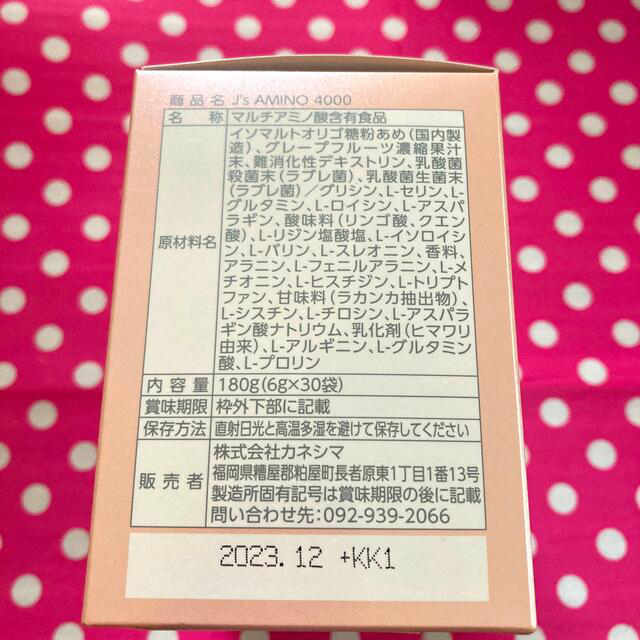 商品名 J's AMINO 4000
名称 マルチアミノ酸含有食品
原材料名
イソマルトオリゴ糖粉あめ(国内製
造)、グレープフルーツ濃縮果汁
末、難消化性デキストリン、乳酸菌
殺菌末(ラブレ菌)、乳酸菌生菌末
(ラブレ菌)/グリシン、L-セリン、L-
グルタミン、L-ロイシン、L-アスパ
ラギン、酸味料(リンゴ酸、クエン
酸)、L-リジン塩酸塩、L-イソロイシ
ン、L-バリン、L-スレオニン、香料、
アラニン、L-フェニルアラニン、L-メ
チオニン、L-ヒスチジン、L-トリプト
ファン、甘味料(ラカンカ抽出物)、
L-シスチン、L-チロシン、L-アスパラ
ギン酸ナトリウム、乳化剤(ヒマワリ
由来)、L-アルギニン、L-グルタミン
酸、L-プロリン
内容量 180g(6g×30袋)
賞味期限 枠外下部に記載
保存方法 直射日光と高温多湿を避けて保存してください
販売者
株式会社カネシマ
福岡県糟屋郡粕屋町長者原東1丁目1番13号
製造所固有記号は賞味期限の後に記載
問い合わせ先:092-939-2066
2023.12 +KK1